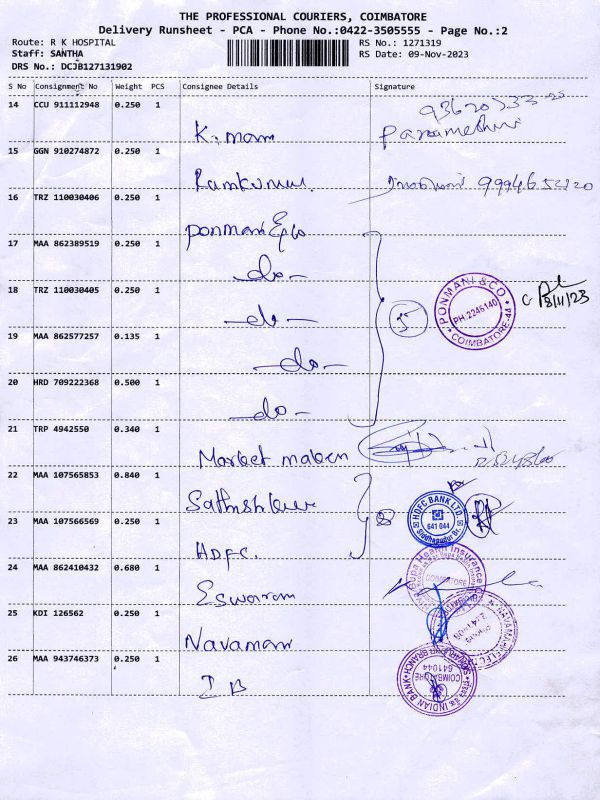 THE PROFESSIONAL COURIERS, COIMBATORE
Delivery Runsheet - PCA - Phone No.:0422-3505555 - Page No.:2
Route: R K HOSPITAL
Staff: SANTHA
DRS No.: DCJB127131902
RS No.: 1271319
RS Date: 09-Nov-2023
S No Consignment No Weight PCS Consignee Details Signature
14 CCU 911112948 0.250 1
15 GGN 910274872 0.250 1
Ramkumar. 9994652220
16 TRZ 110030406 0.250 1
ponmani
17 MAA 862389519 0.250 1
-do-
18 TRZ 110030405 0.250 1
-do-
PONMANI & CO
PH:2246140
COIMBATORE-44
8/11/23
19 MAA 862577257 0.135 1
-do-
20 HRD 709222368 0.500 1
-do-
21 TRP 4942550 0.340 1
Market
22 MAA 107565853 0.840 1
23 MAA 107566569 0.250 1
HDFC.
HDFC BANK LTD.
641 044
Siddhapudur Br.
24 MAA 862410432 0.680 1
Eswaram
Bupa Health Insurance
COIMBATORE
25 KDI 126562 0.250 1
Navamani
26 MAA 943746373 0.250 1
IB
INDIAN BANK
COIMBATORE
641044